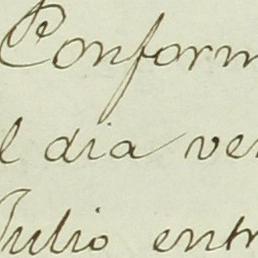 Conform
l dia ve
Julio entr